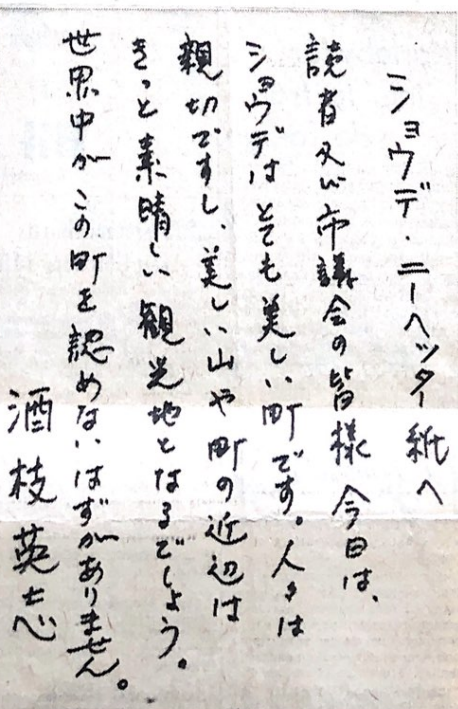 ショウデ・ニーヘッター紙へ
読者又は市議会の皆様 今日は、
ショウデはとても美しい町です。人々は
親切ですし 美しい山や町の近辺は
きっと素晴しい観光地となるでしょう。
世界中がこの町を認めないはずがありません。
酒枝英志